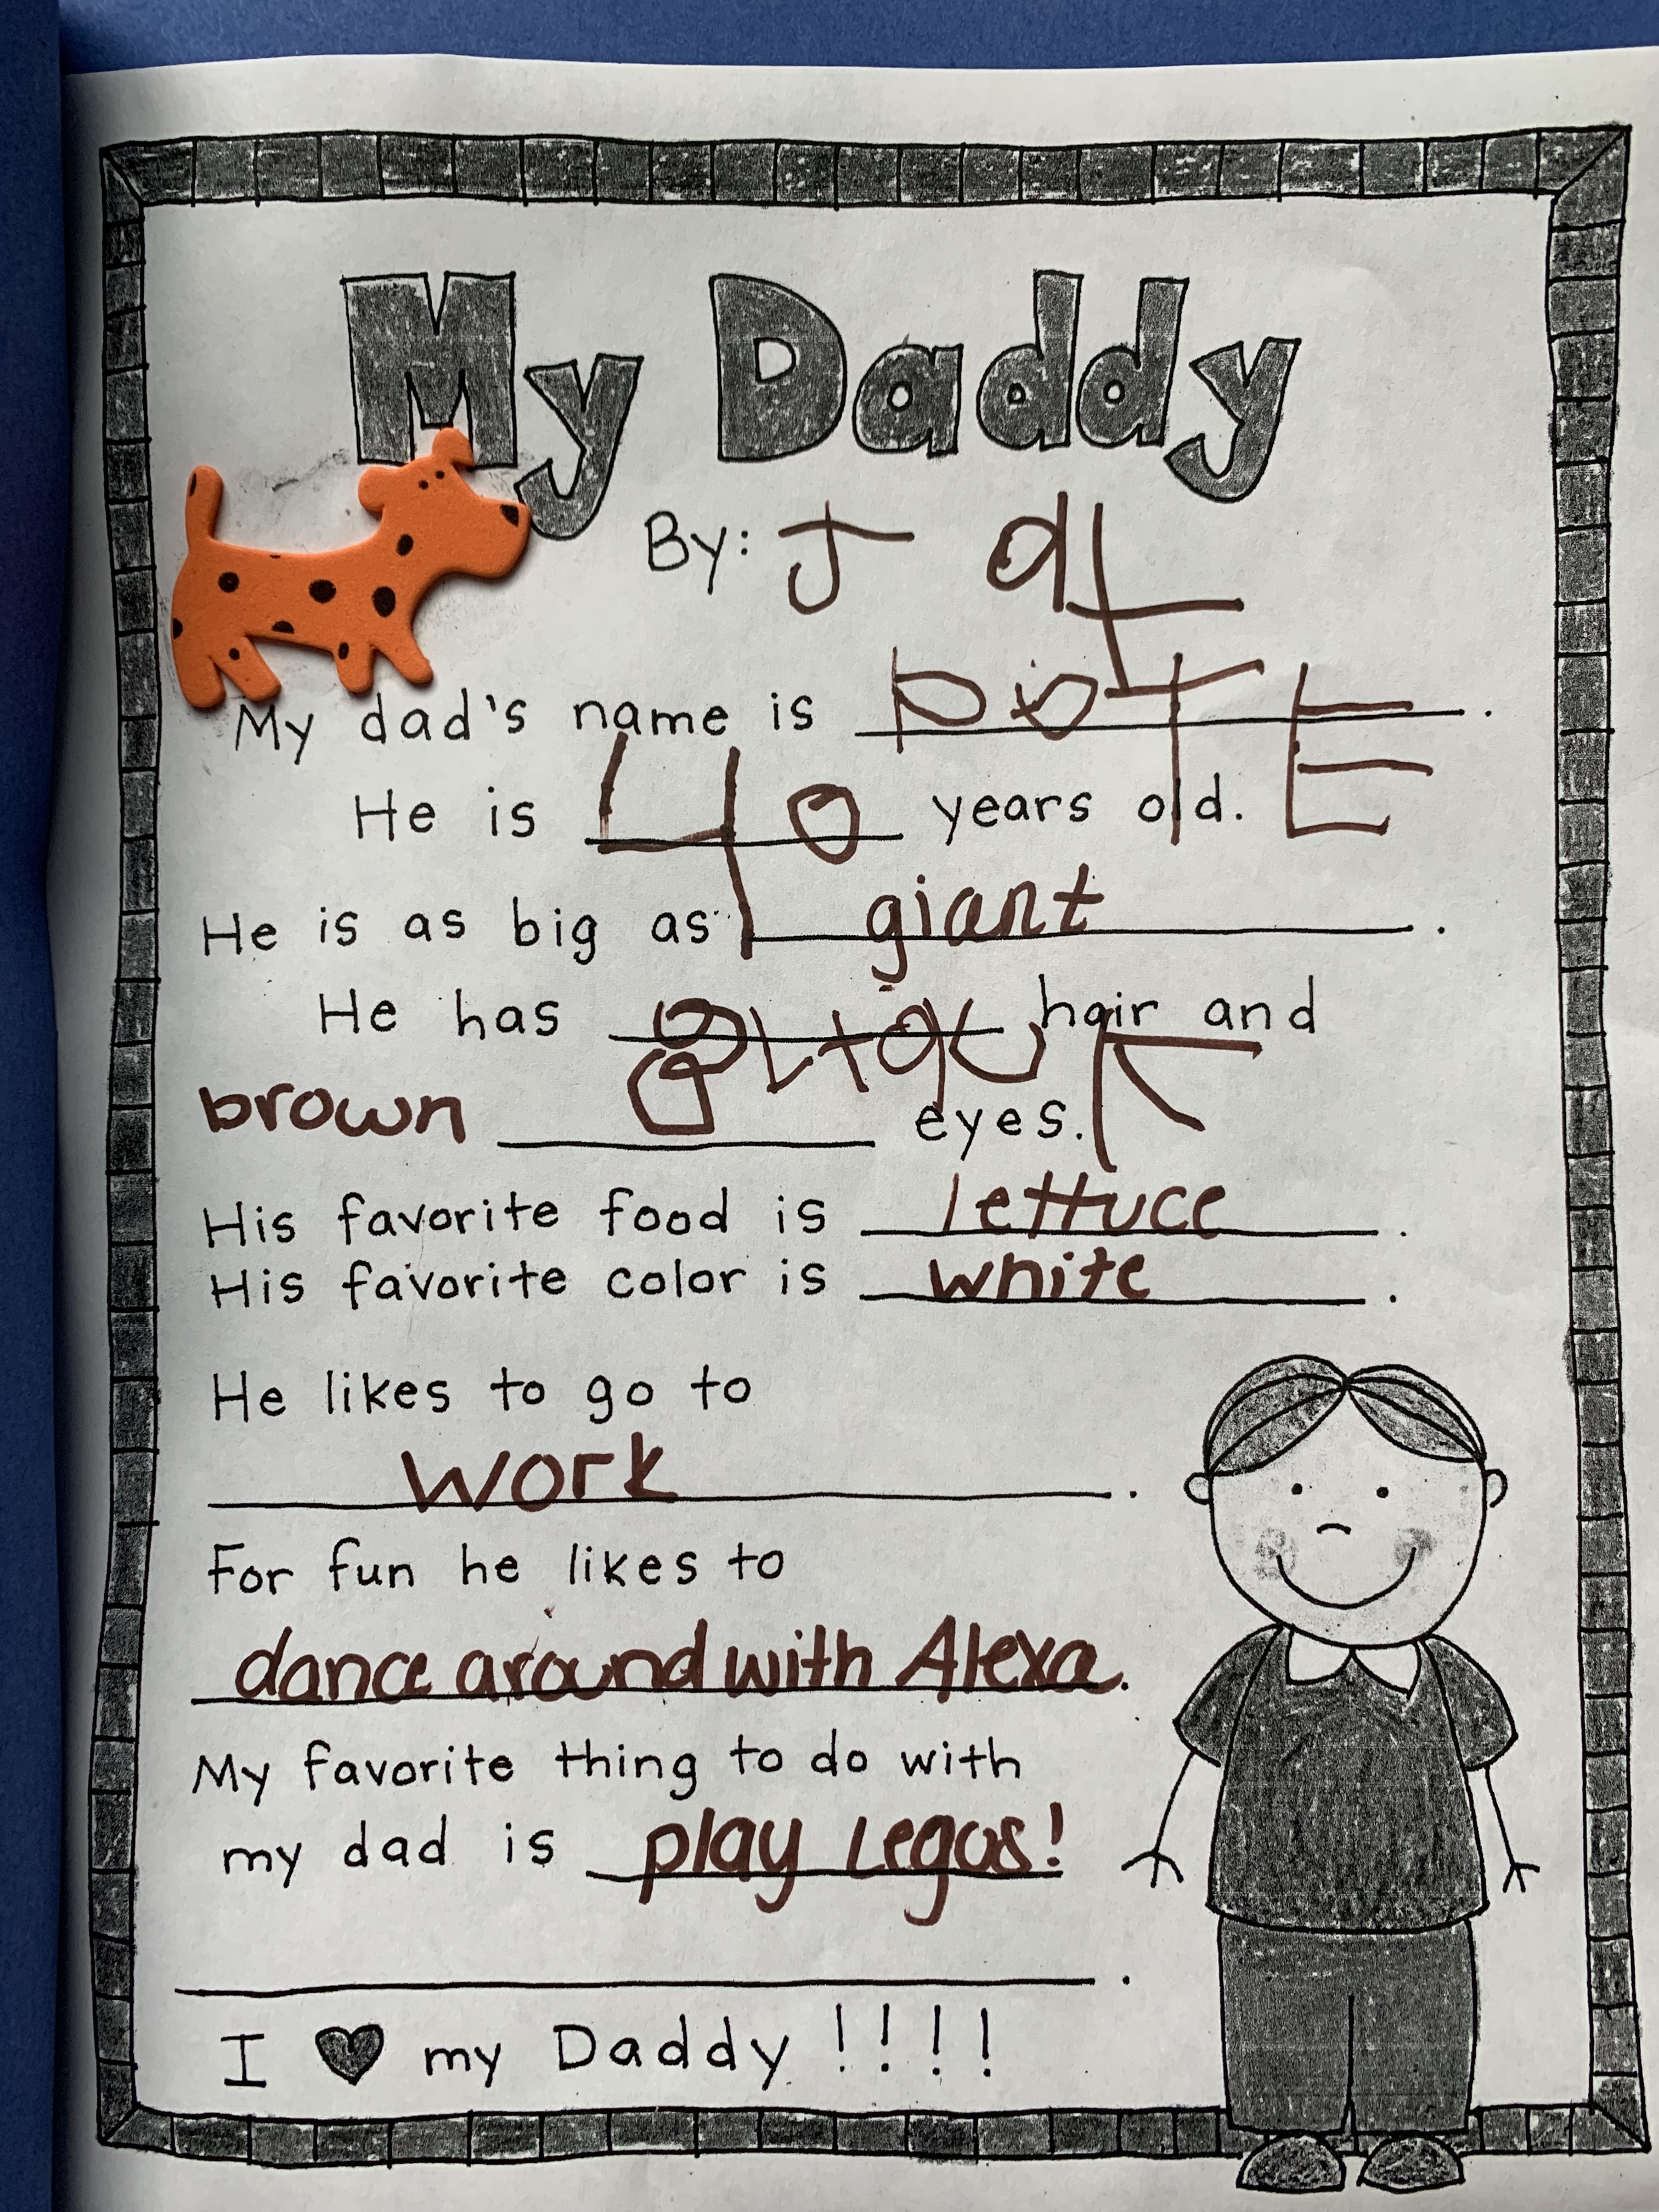 My Daddy
By: J
My dad's name is
He is 40 years old.
He is as big as giant.
He has hair and
brown eyes.
His favorite food is lettuce.
His favorite color is white.
He likes to go to
work.
For fun he likes to
dance around with Alexa.
My favorite thing to do with
my dad is play Legos!
.
I ♥ my Daddy !!!!